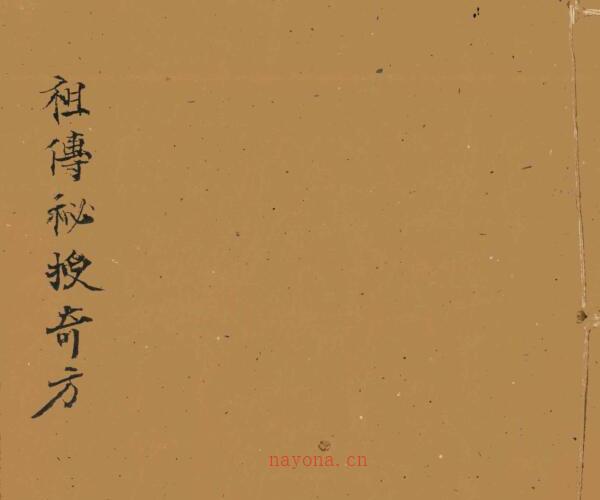 祖傳秘授奇方
nayona.cn